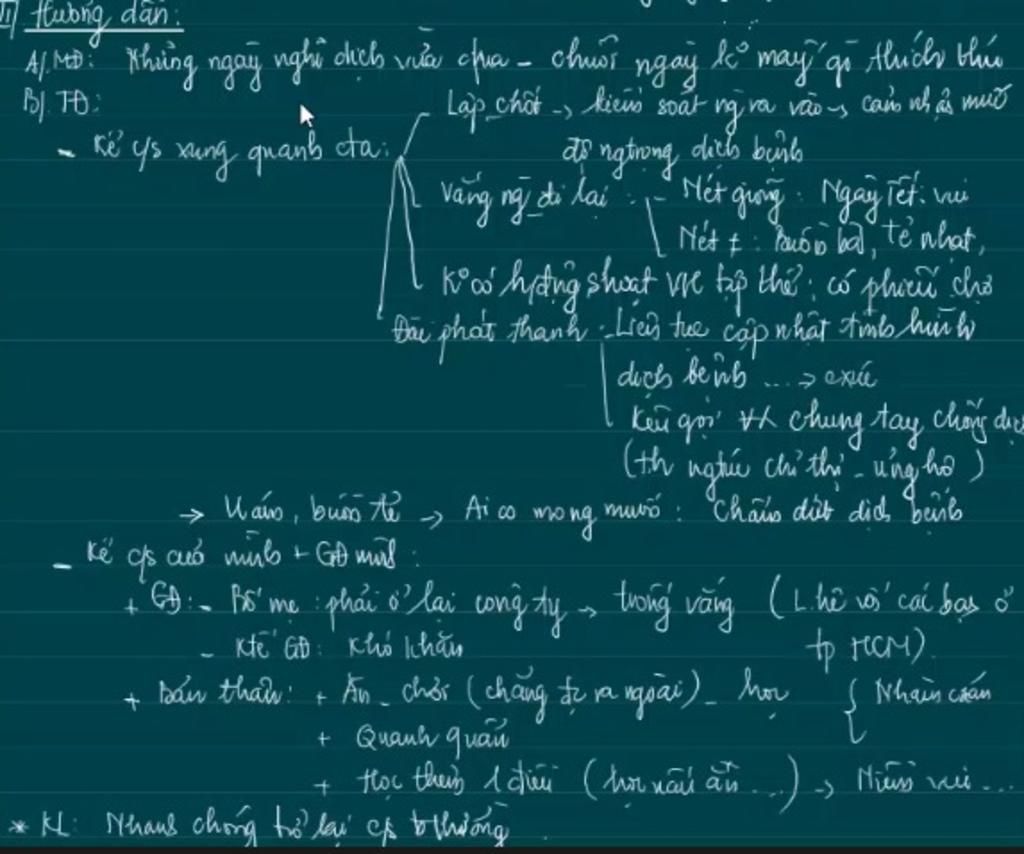 II/ Hướng dẫn:
A/. MĐ: Những ngày nghỉ dịch vừa qua - chuỗi ngày kể mấy gì thích thú
B/. TĐ:
Lập chốt → kiểm soát ng ra vào → cảm nhận mức
- Kể c/s xung quanh ta:
độ ngtrọng dịch bệnh
Vắng ng đi lại : - Nét giống : Ngày Tết: vui
Nét ≠ : Buồn bã, tẻ nhạt,
K° có hđộng shoạt VH tập thể ; có phiếu chợ
Đài phát thanh - Liên tục cập nhật tình hình
dịch bệnh ... → cxúc
Kêu gọi chung tay chống dịc
(th nghiêm chỉ thị - ủng hộ)
→ U ám, buồn tẻ → Ai co mong muốn : Chấm dứt dịch bệnh
- Kể c/s của mình + GĐ mình :
+ GĐ: - Bố mẹ : phải ở lại công ty → trống vắng ( L.hệ với các bạn ở
- Ktế GĐ: Khó khăn
tp HCM).
+ Bản thân: + Ăn - chơi (chẳng đc ra ngoài) - học { Nhàm chán
+ Quanh quẩn
+ Học thêm 1 điều (học nấu ăn ...) → Niềm vui ...
* KL: Nhanh chóng trở lại c/s bthường .